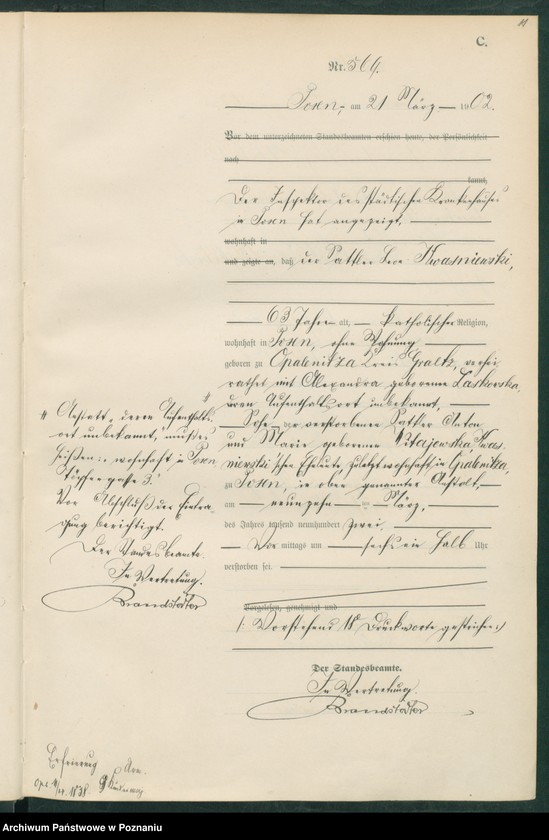 11
C.
Nr. 569.
Posen, am 21 März 1902.
Vor dem unterzeichneten Standesbeamten erschien heute, der Persönlichkeit
nach
kannt,
Der Inspektor des städtischen Krankenhauses
in Posen hat angezeigt,
wohnhaft in
und zeigte an, daß der Sattler Leo Kwasniewski,
63 Jahre alt, katholischer Religion,
wohnhaft in Posen, ohne Wohnung
geboren zu Opalenitza Kreis Graetz, verhei-
rathet mit Alexandra geborenen Laskowska,
deren Aufenthaltsort unbekannt,
Sohn der verstorbenen Sattler Anton
und Marie geborenen Kwas-
niewski'schen Eheleute, zuletzt wohnhaft in Opalenitza,
zu Posen, in oben genannter Anstalt,
am neunzehn ten März,
des Jahres tausend neunhundert zwei,
Vor mittags um sechs ein halb Uhr
verstorben sei.
Vorgelesen, genehmigt und
/: Vorstehend 18 Druckworte gestrichen :/
Der Standesbeamte.
In Vertretung.
Brandstädter
# Anstatt „deren Aufenthalts-
ort unbekannt," muß es
heißen: „wohnhaft in Posen,
Töpfergasse 3."
Vor Abschluß der Eintra-
gung berichtigt.
Der Standesbeamte.
In Vertretung.
Brandstädter
Archiwum Państwowe w Poznaniu